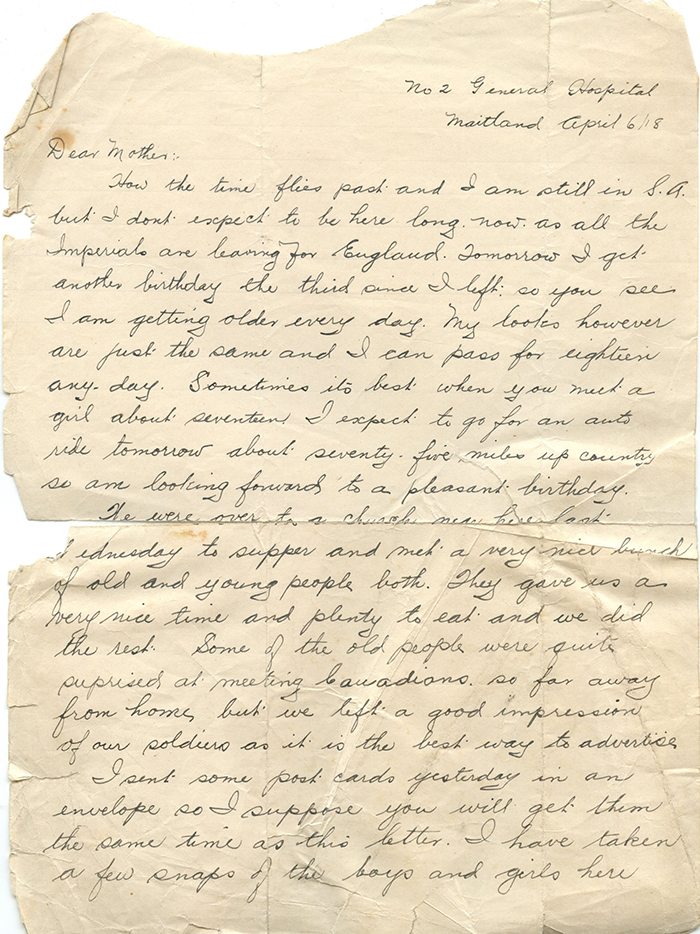 No 2 General Hospital
Maitland April 6/18
Dear Mother:
How the time flies past and I am still in S.A.
but I dont expect to be here long now as all the
Imperials are leaving for England. Tomorrow I get
another birthday the third since I left so you see
I am getting older every day. My looks however
are just the same and I can pass for eighteen
any-day. Sometimes its best when you meet a
girl about seventeen I expect to go for an auto
ride tomorrow about seventy-five miles up country
so am looking forward to a pleasant birthday.
We were over to a church near here last
Wednesday to supper and met a very nice bunch
of old and young people both. They gave us a
very nice time and plenty to eat and we did
the rest. Some of the old people were quite
suprised at meeting Canadians so far away
from home but we left a good impression
of our soldiers as it is the best way to advertise
I sent some post cards yesterday in an
envelope so I suppose you will get them
the same time as this letter. I have taken
a few snaps of the boys and girls here